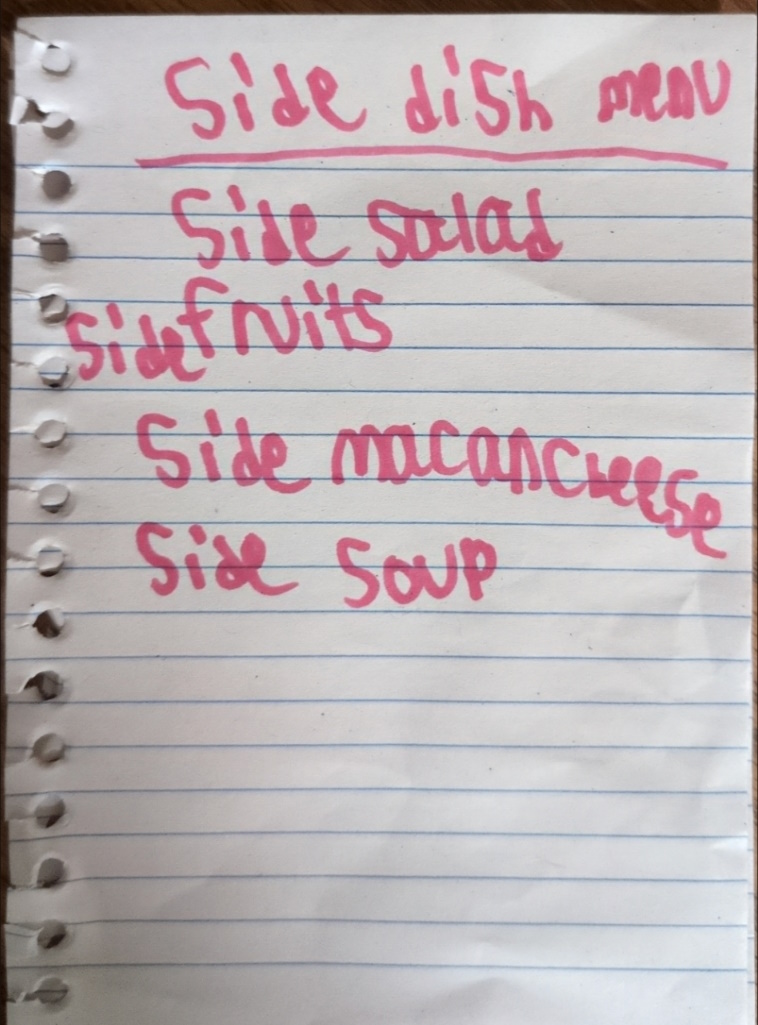 Side dish menu
Side salad
Side fruits
Side macancheese
Side soup